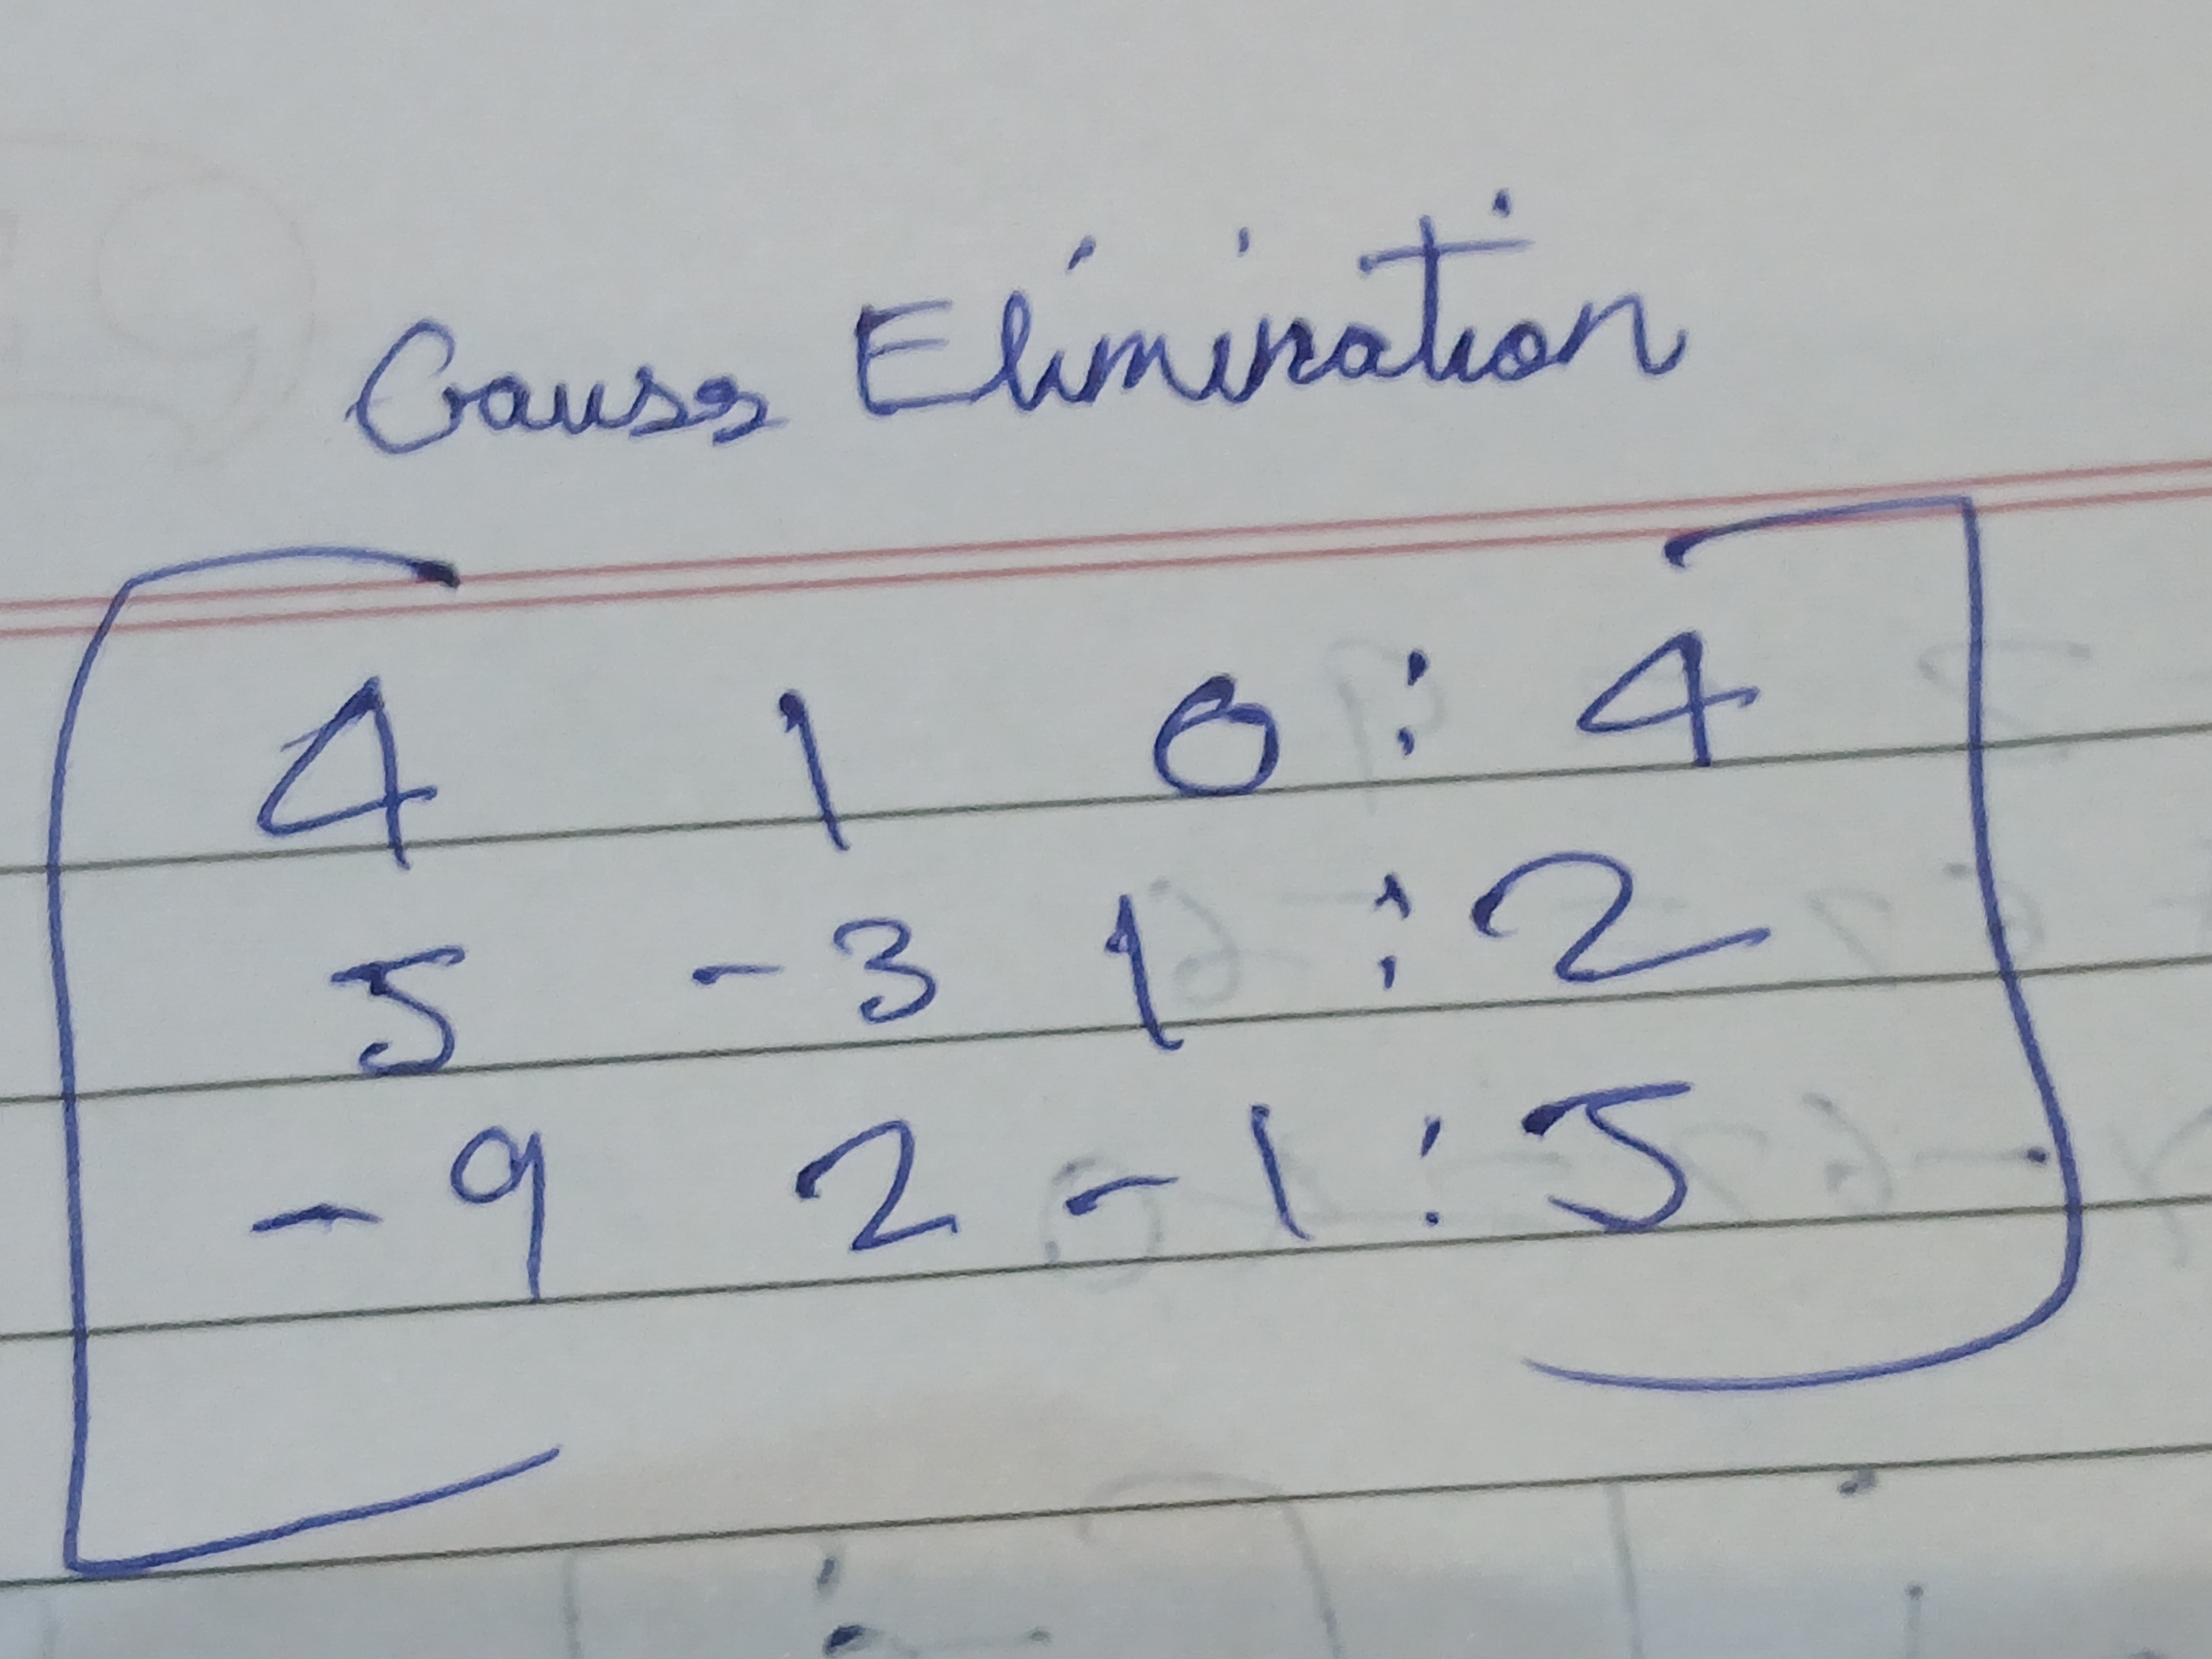 Gauss Elimination
4 1 0 : 4
5 -3 1 : 2
-9 2 -1 : 5